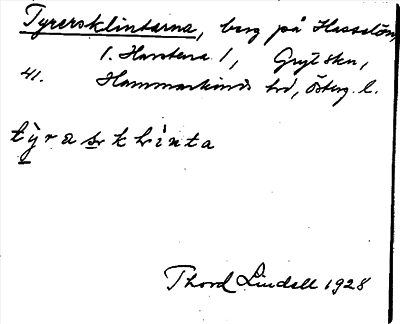 Tyrersklintarna, berg på Hasselön,
1. Harstena 1, Gryt skn,
41. Hammarkinds hd, Österg. l.
tỳrasrkhinta
Thord Lindell 1928